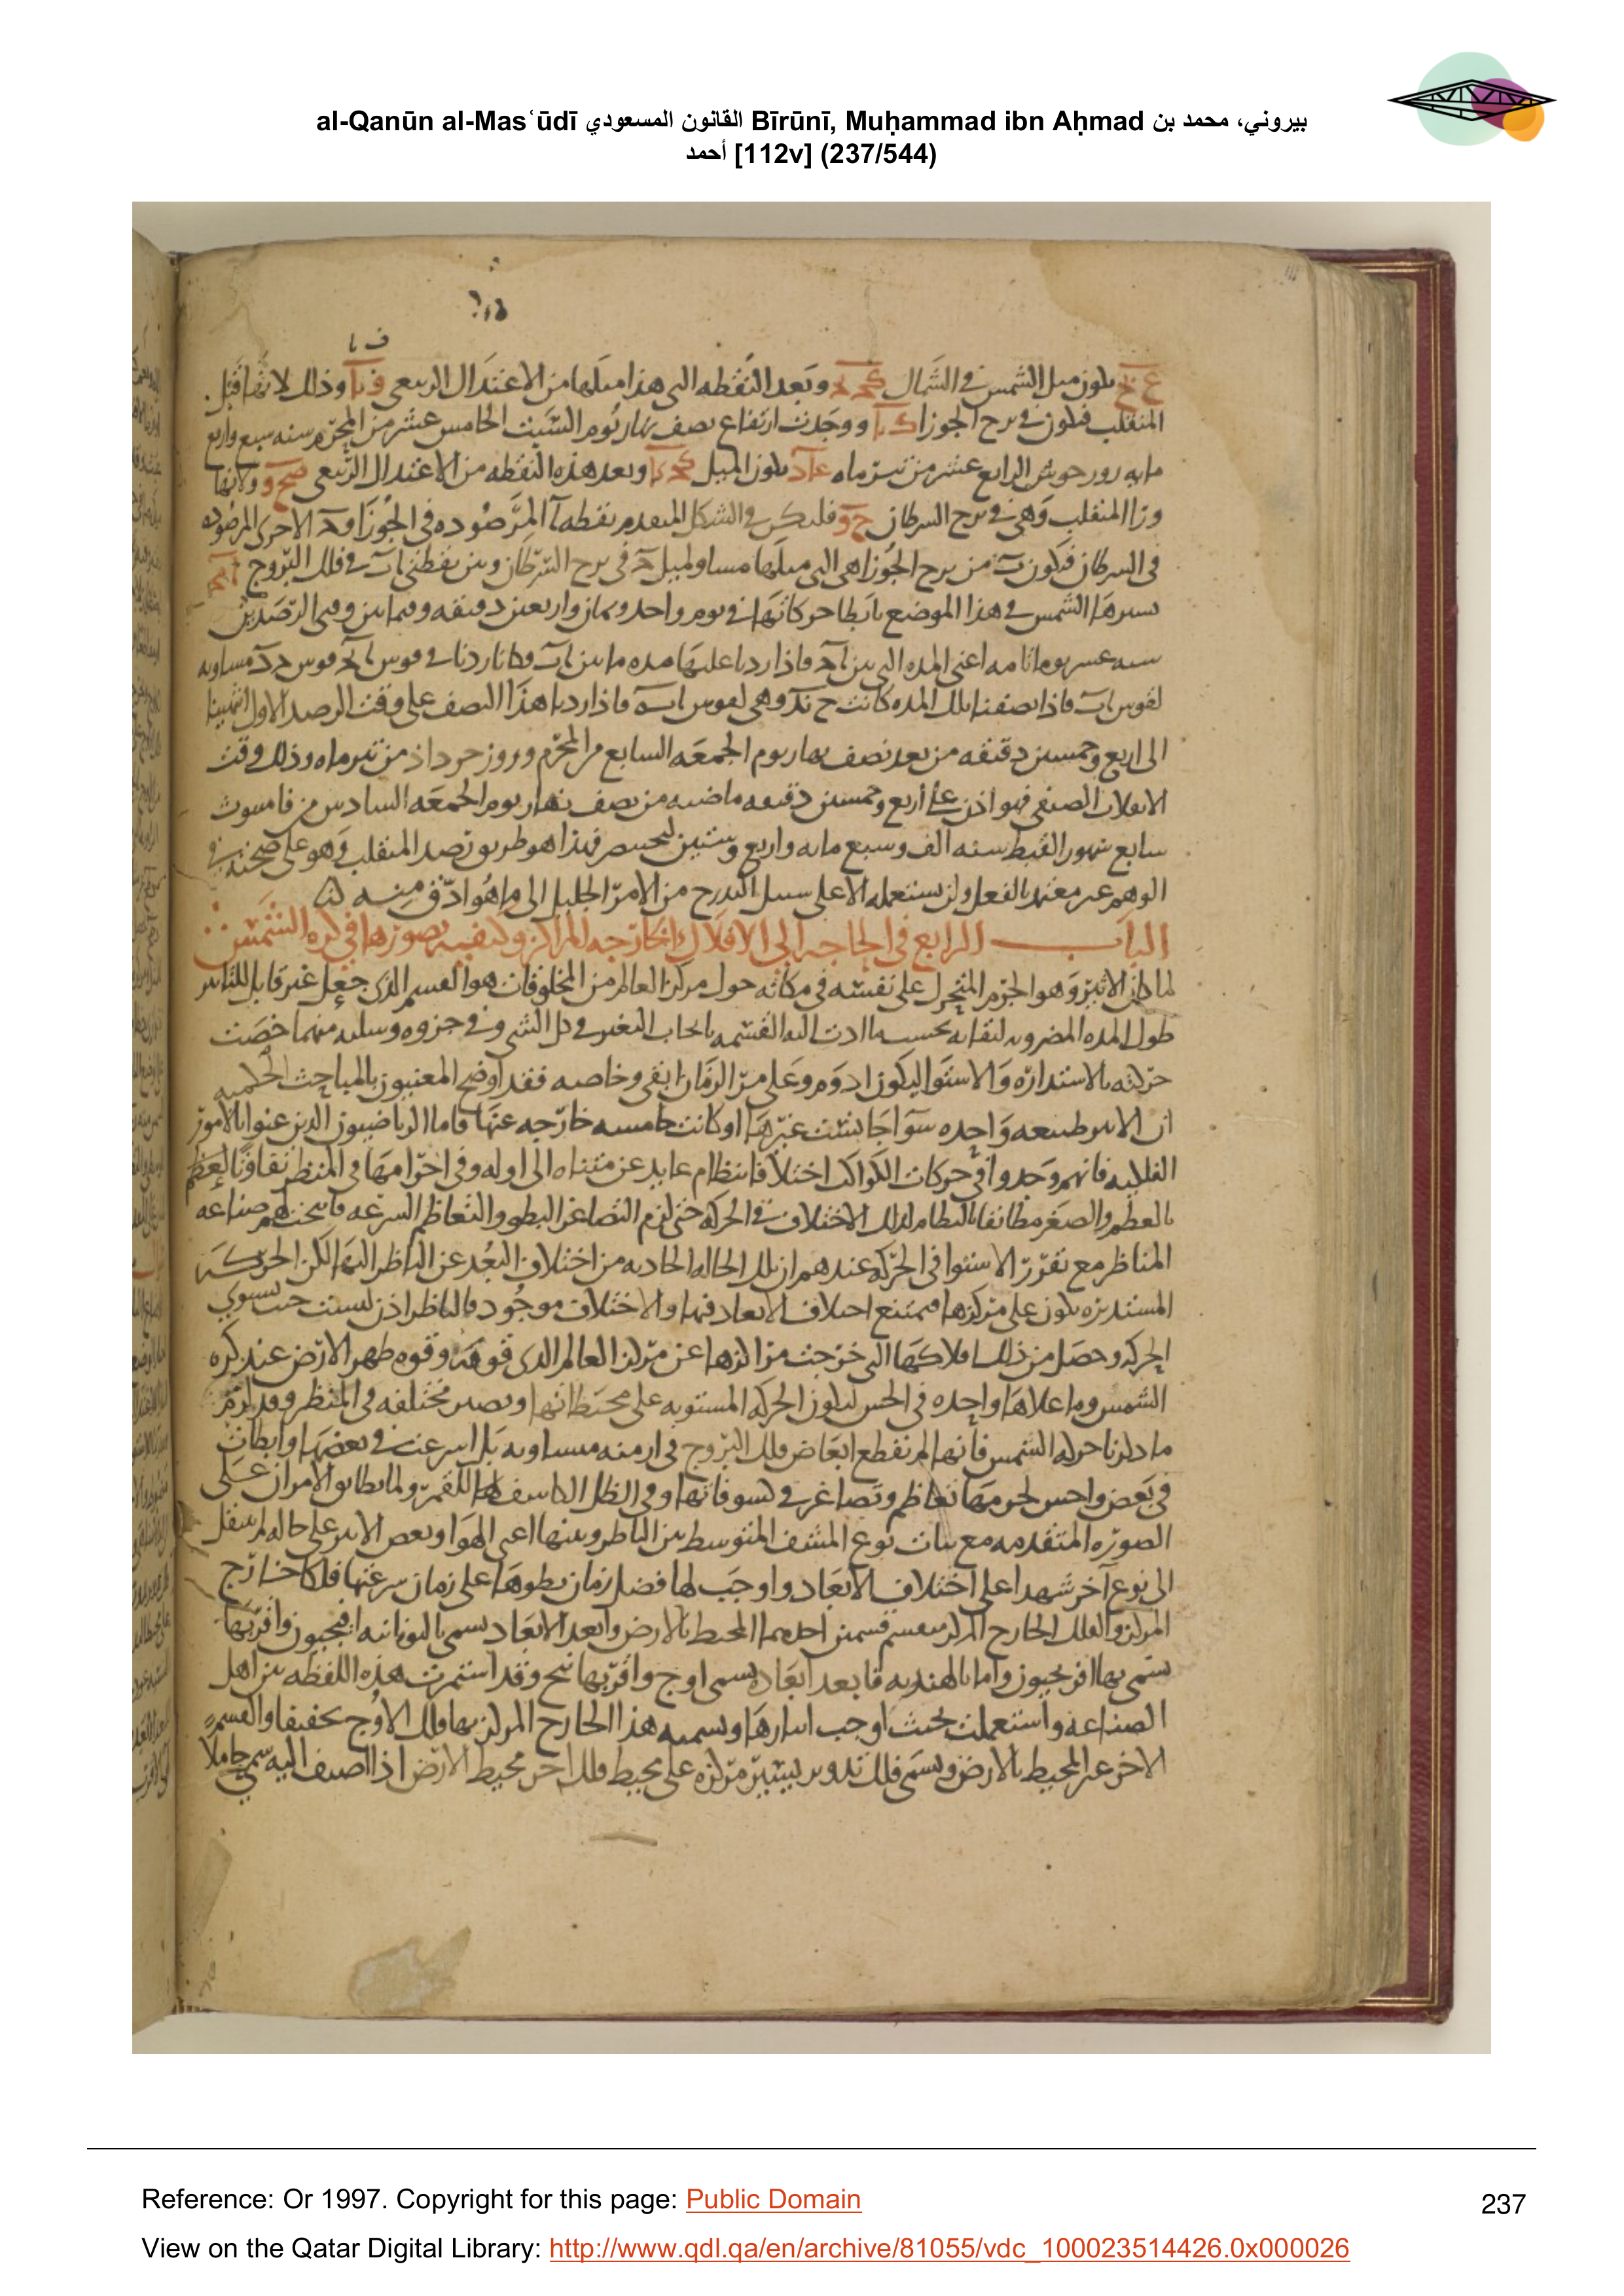 al-Qanūn al-Masʿūdī القانون المسعودي Bīrūnī, Muḥammad ibn Aḥmad بيروني، محمد بن
أحمد [112v] (237/544)
الشمس في الشمال وبعد النقطه التي هذا ميلها من الاعتدال الربيعي وذلك لانها قبل
المنقلب فيكون في برج الجوزا ووجدت ارتفاع نصف نهار يوم السبت الخامس عشر من المحرم سنه سبع واربع
مايه الرابع عشر من تير ماه يكون الميل وبعد هذه النقطه من الاعتدال الربيعي
المنقلب وهي في برج السرطان فليكن في الشكل المتقدم نقطه آ المرصوده في الجوزا الاخرى المرصوده
في السرطان فيكون من برج الجوزا هي التي ميلها مساو لميل في برج السرطان وبين نقطتي في فلك البروج
الشمس في هذا الموضع بابطا حركاتها في يوم واحد وثمان واربعين دقيقه وفيما بين وقتي الرصدين
اعني المده التي بين فاذا زدنا عليها مده ما بين
لقوس فاذا نصفنا تلك المده كانت وهي لقوس فاذا زدنا هذا النصف على وقت الرصد الاول انتهينا
الى اربع وخمسين دقيقه من بعد نصف نهار يوم الجمعه السابع من المحرم وروز خرداذ من تير ماه وذلك وقت
الانقلاب الصيفي فهو اذن على اربع وخمسين دقيقه ماضيه من نصف نهار يوم الجمعه السادس من فامنوث
سابع شهور القبط سنه الف وسبع مايه واربع وستين لبختنصر فهذا هو طريق رصد المنقلب وهو على صحته في
الوهم غير معتمد بالفعل ولن نستعمله الا على سبيل التدرج من الامر الجليل الى ما هو ادق منه
الباب الرابع في الحاجه الى الافلاك الخارجه المراكز وكيفيه تصورها في كره الشمس
لما كان الاثير وهو الجرم المتحرك على نفسه في مكانه حول مركز العالم من المخلوقات هو القسم الذي جعل غير قابل للتاثير
طول المده المضروبه لبقايه بحسب ما ادت اليه القسمه بايجاب التغير في كل الشي وفي جزوه وسلبه منهما خصت
حركته بالاستداره والاستوا ليكون ادوم وعلى مر الزمان ابقى وخاصه فقد اوضح المعنيون بالمباحث الحكميه
ان الاثير طبيعه واحده سوا جانست غيرها او كانت خامسه خارجه عنها فاما الرياضيون الذين عنوا بالامور
الفلكيه فانهم وجدوا في حركات الكواكب اختلافا بنظام عايد عن متناه الى اوله وفي اجرامها في المنظر تفاوتا
بالعظم والصغر مطابقا بالنظام لذلك الاختلاف في الحركه حتى لزم التصاغر البطو والتعاظم السرعه صناعه
المناظر مع تقرر الاستوا في الحركه عندهم ان تلك الحاله الحادثه من اختلاف البعد عن الناظر اليها لكن الحركه
المستديره يكون على مركزها فيمتنع اختلاف الابعاد فيها والاختلاف موجود فالناظر اذن ليست حيث تستوي
الحركه وحصل من ذلك افلاكها التي خرجت مراكزها عن مركز العالم الذي فوقه وقوم ظهر الارض عند كره
الشمس وما علاها واحده في الحس ليكون الحركه المستويه على محيطاتها وتصير مختلفه في المنظر
ما ذكرنا حركه الشمس فانها لم تقطع ابعاض فلك البروج في ازمنه متساويه بل اسرعت في بعضها وابطات
في بعض واحس لجرمها تعاظم وتصاغر في كسوفاتها وفي الظل الكاسف للقمر ولما تطابق الامران على
الصوره المتقدمه مع ثبات نوع المشف المتوسط بين الناظر وبينها اعني الهوا وبعض الاثير على حاله لم ينتقل
الى نوع آخر شهدا على اختلاف الابعاد واوجب لها فضل زمان بطوها على زمان سرعتها فلكا خارج
المركز والفلك الخارج المركز ينقسم قسمين احدهما المحيط بالارض وابعد الابعاد يسمى باليونانيه افيجيون واقربها
يسمى بها افريجيون واما بالهنديه فابعد ابعاده يسمى اوج واقربها نيج وقد استمرت هذه اللفظه بين اهل
الصناعه واستعملت بحيث اوجب ايثارها وتسميه هذا الخارج المركز بها فلك الاوج تخفيفا والقسم
الاخر غير المحيط بالارض ويسمى فلك تدوير يسير مركزه على محيط فلك اخر محيط بالارض اذا اضيف اليه سمي حاملا
Reference: Or 1997. Copyright for this page: Public Domain
237
View on the Qatar Digital Library: http://www.qdl.qa/en/archive/81055/vdc_100023514426.0x000026